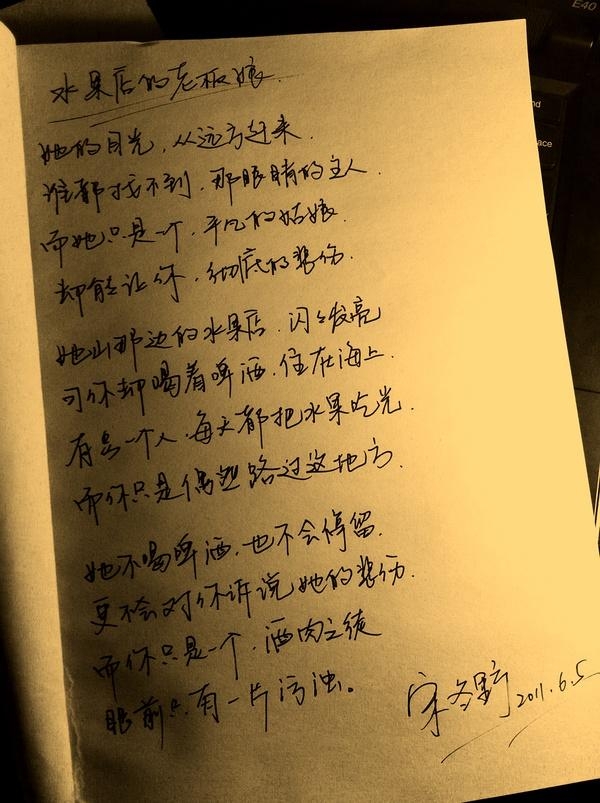 水果店的老板娘
她的目光，从远方赶来.
谁都找不到，那眼睛的主人.
而她只是一个，平凡的姑娘.
却能让你，彻底的悲伤.
她山那边的水果店，闪闪发亮
可你却喝着啤酒，住在海上.
有另一个人，每天都把水果吃光.
而你只是偶然路过这地方.
她不喝啤酒，也不会停留.
更不会对你诉说她的悲伤.
而你只是一个，酒肉之徒
眼前只有一片污浊。
宋冬野 2011.6.5
E40
nd
ace